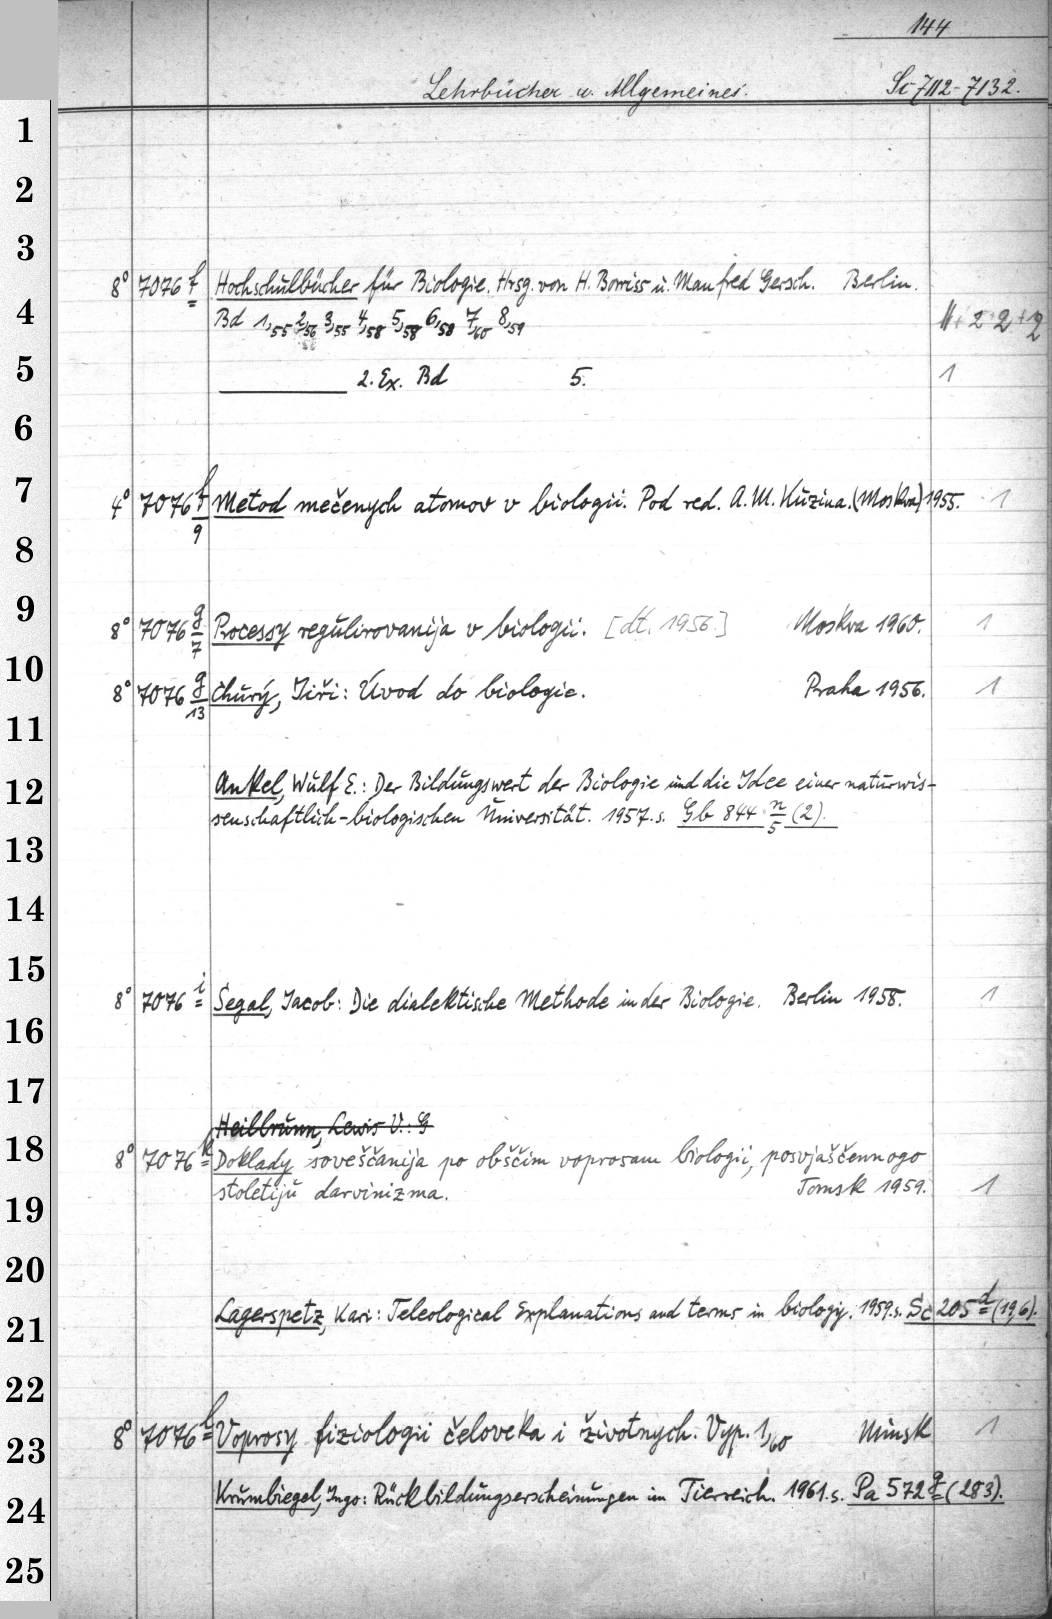 144
Lehrbücher u. Allgemeines. Sc 7112-7132.
1
2
3
8° 7076 f Hochschulbücher für Biologie. Hrsg. von H. Borriss u. Manfred Gersch. Berlin.
4 Bd 1,55 2,56 3,55 4,58 5,58 6,58 7,60 8,59 2+2+2
5 2. Ex. Bd 5. 1
6
7 4° 7076 f/9 Metod mečenych atomov v biologii. Pod red. A. M. Kuzina. (Moskva) 1955. 1
8
9 8° 7076 g/7 Processy regulirovanija v biologii. [dt. 1956.] Moskva 1960. 1
10 8° 7076 g/13 Churý, Jiři: Úvod do biologie. Praha 1956. 1
11
12 Ankel, Wulf E.: Der Bildungswert der Biologie und die Idee einer naturwis-
senschaftlich-biologischen Universität. 1957. s. Gb 844 n/5 (2).
13
14
15
8° 7076 i Segal, Jacob: Die dialektische Methode in der Biologie. Berlin 1958. 1
16
17
Heilbrunn, Lewis V.: G
18 8° 7076 k Doklady soveščanija po obščim voprosam biologii, posvjaščennogo
19 stoletiju darvinizma. Tomsk 1959. 1
20
21 Lagerspetz, Kari: Teleological Explanations and terms in biology. 1959. s. Sc 205 d (19,6).
22
23 8° 7076 l Voprosy fiziologii čeloveka i životnych. Vyp. 1,60 Minsk 1
24 Krumbiegel, Ingo: Rückbildungserscheinungen im Tierreich. 1961. s. Pa 572 g (283).
25